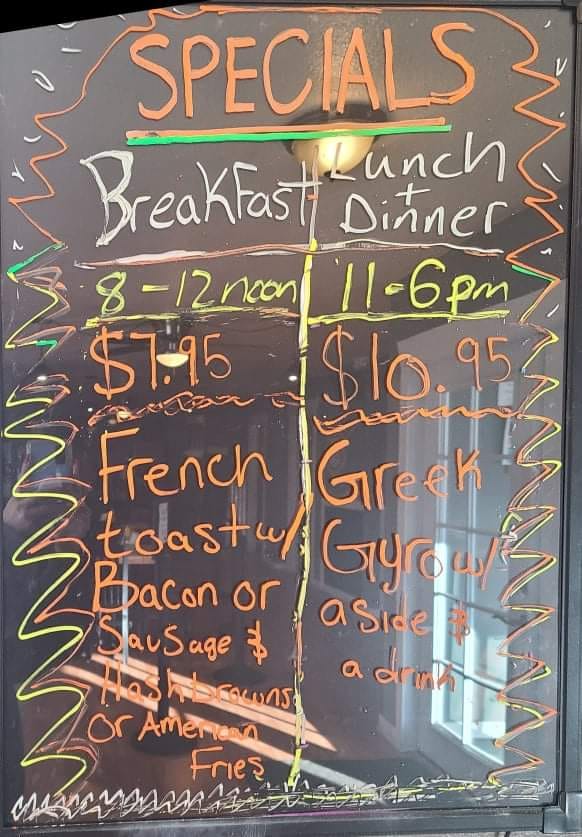 SPECIALS
Breakfast
8-12 noon
$7.95
French
toast w/
Bacon or
Sausage &
Hashbrowns
Or American
Fries
Lunch
+
Dinner
11-6pm
$10.95
Greek
Gyro w/
a side &
a drink